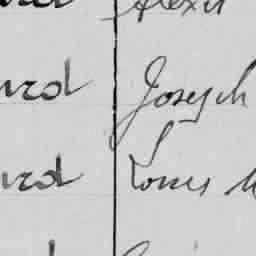 urd Alexis
urd Joseph
urd Louis